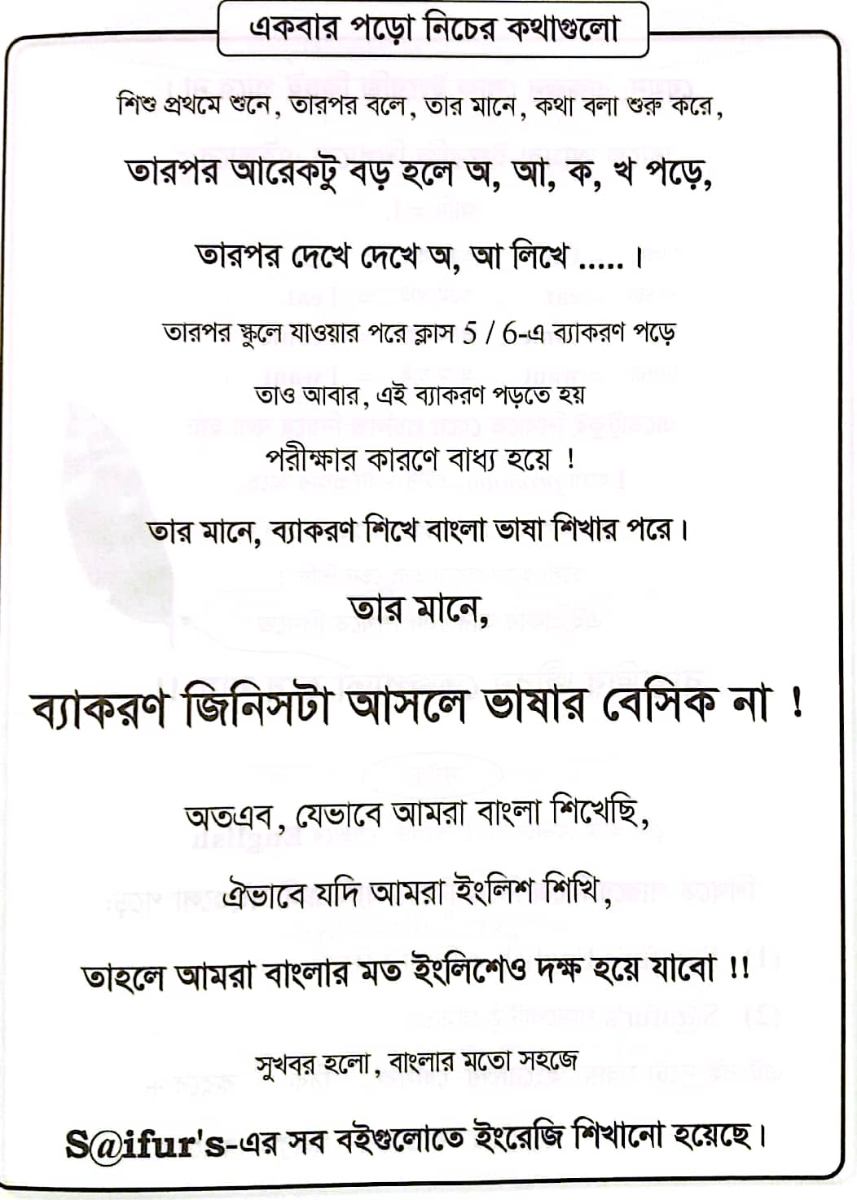 একবার পড়ো নিচের কথাগুলো
শিশু প্রথমে শুনে, তারপর বলে, তার মানে, কথা বলা শুরু করে,
তারপর আরেকটু বড় হলে অ, আ, ক, খ পড়ে,
তারপর দেখে দেখে অ, আ লিখে ..... ।
তারপর স্কুলে যাওয়ার পরে ক্লাস 5 / 6-এ ব্যাকরণ পড়ে
তাও আবার, এই ব্যাকরণ পড়তে হয়
পরীক্ষার কারণে বাধ্য হয়ে !
তার মানে, ব্যাকরণ শিখে বাংলা ভাষা শিখার পরে।
তার মানে,
ব্যাকরণ জিনিসটা আসলে ভাষার বেসিক না !
অতএব, যেভাবে আমরা বাংলা শিখেছি,
ঐভাবে যদি আমরা ইংলিশ শিখি,
তাহলে আমরা বাংলার মত ইংলিশেও দক্ষ হয়ে যাবো !!
সুখবর হলো, বাংলার মতো সহজে
S@ifur's-এর সব বইগুলোতে ইংরেজি শিখানো হয়েছে।